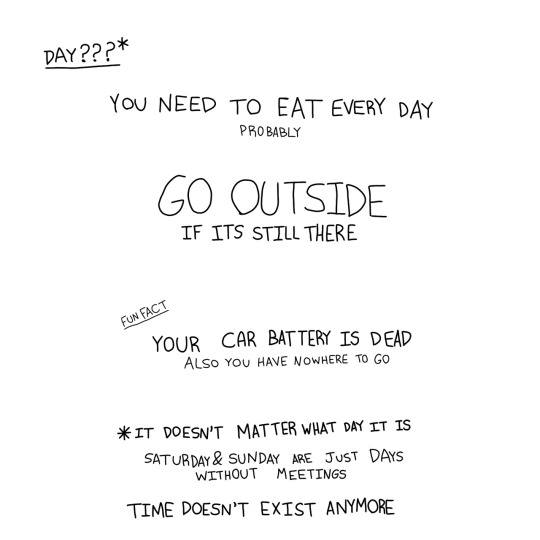 DAY???*
YOU NEED TO EAT EVERY DAY
PROBABLY
GO OUTSIDE
IF ITS STILL THERE
FUN FACT
YOUR CAR BATTERY IS DEAD
ALSO YOU HAVE NOWHERE TO GO
*IT DOESN'T MATTER WHAT DAY IT IS
SATURDAY & SUNDAY ARE JUST DAYS
WITHOUT MEETINGS
TIME DOESN'T EXIST ANYMORE